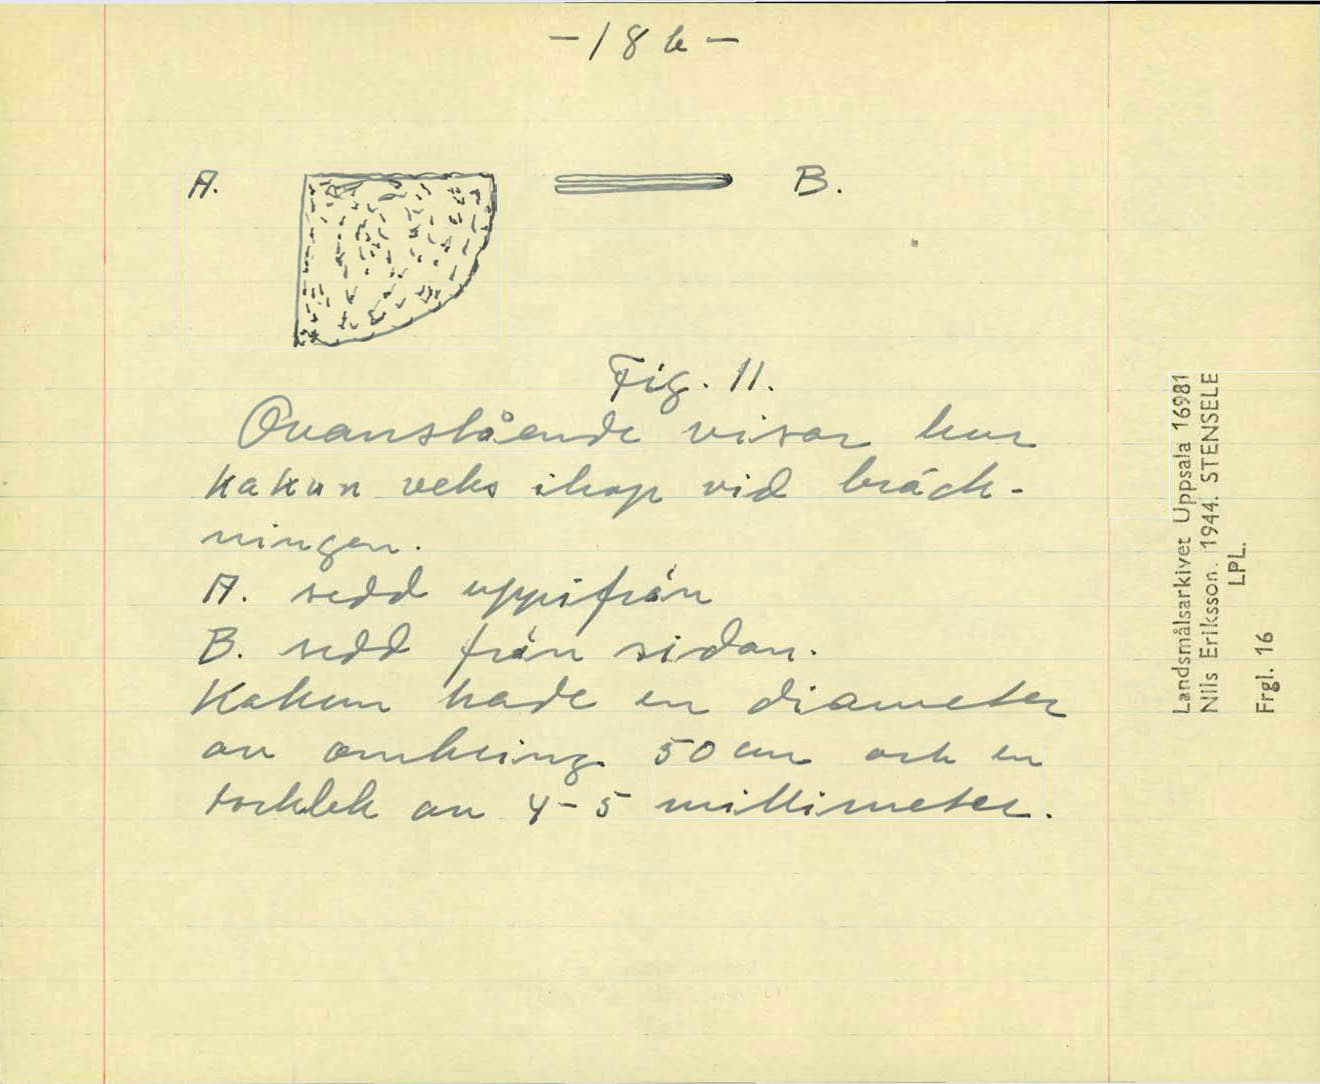 - 18 b -
A.
B.
Fig. 11.
Ovanstående visar hur
kakun veks ihop vid bräck-
ningen.
A. sedd uppifrån
B. sedd från sidan.
Kakun hade en diameter
av omkring 50 cm och en
torklek av 4-5 millimeter.
Landsmålsarkivet Uppsala 16981
Nils Eriksson. 1944. STENSELE
LPL.
Frgl. 16